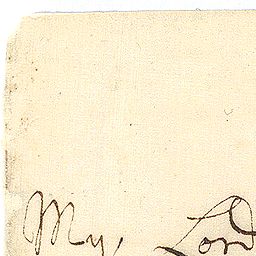 My Lord